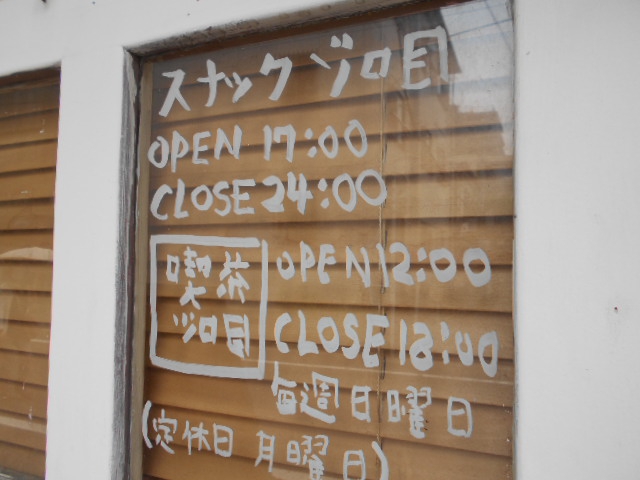 スナックゾロ目
OPEN 17:00
CLOSE 24:00
喫茶
ゾロ目
OPEN 12:00
CLOSE 18:00
毎週日曜日
(定休日 月曜日)